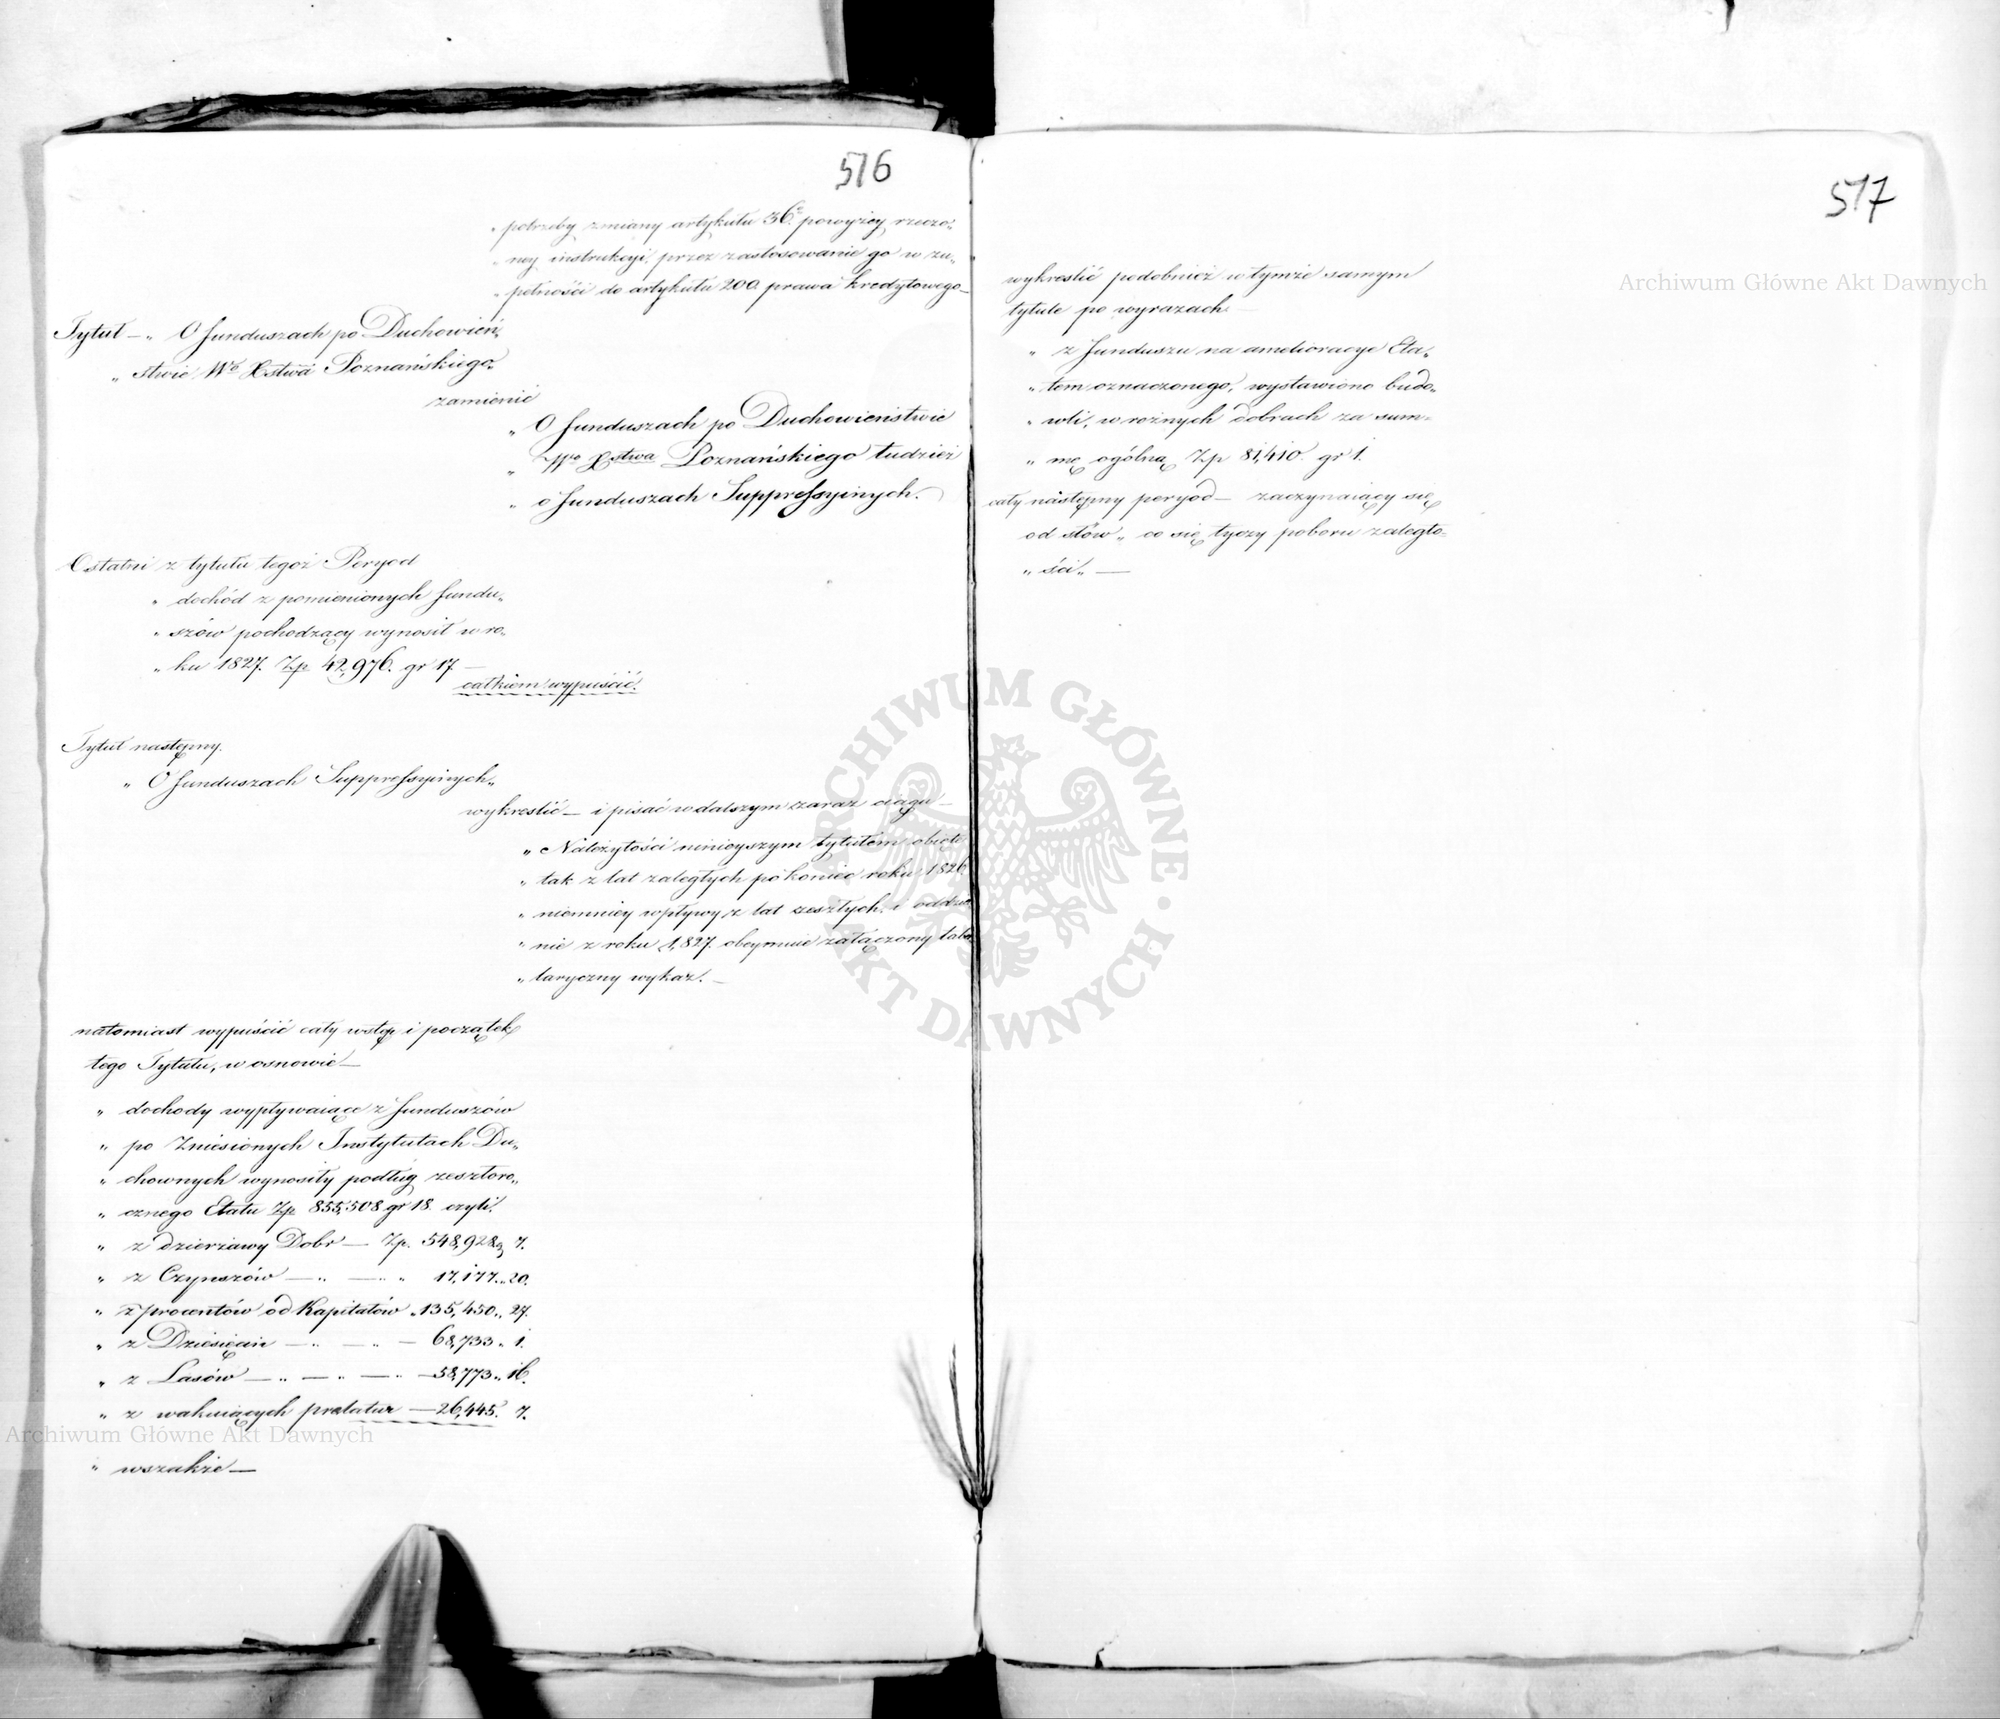 516
„ potrzeby zmiany artykułu 36.º powyżey rzeczo„
„ ney instrukcyi, przez zastosowanie go w zu„
„ pełności do artykułu 200 prawa kredytowego —
Tytuł — „ O funduszach po Duchowień„
„ stwie Wº Xstwa Poznańskiego„
zamienić
„ O funduszach po Duchowieństwie
„ Wgo Xstwa Poznańskiego tudzież
„ o funduszach Suppressyinych.
Ostatni z tytułu tegoż Peryod
„ dochód z pomienionych fundu„
„ szów pochodzący wynosił w ro„
„ ku 1827. Zp 42,976. gr 17 —
całkiem wypuścić.
Tytuł następny.
„ O funduszach Suppressyinych„
wykreślić — i pisać w dalszym zaraz ciągu —
„ Należytości ninieyszym tytułem obięte
„ tak z lat zaległych po koniec roku 1826.
„ niemniey wpływy z lat zeszłych, i oddziel
„ nie z roku 1,827. obeymuie załączony tabe
„ laryczny wykaz. —
natomiast wypuścić cały wstęp i początek
tego Tytułu, w osnowie —
„ dochody wypływaiące z funduszów
„ po Zniesionych Instytutach Du„
„ chownych wynosiły podług zeszłoro„
„ cznego Etatu Zp 855,508 gr 18. czyli.
„ z dzierżawy Dobr — Zp. 548,928 g 7.
„ z Czynszów — „ — „ „ 17,177. „ 20.
„ z procentów od Kapitałów „ 135,450. „ 27.
„ z Dziesięcin — „ — „ — 68,733 „ 1.
„ z Lasów — „ — „ — „ — 58,773 „ 16.
„ z wakuiących prelatur — 26,445. 7.
„ wszakże —
517
wykreślić podobnież w tymże samym
tytule po wyrazach —
„ z funduszu na amelioracye Eta„
„ tem oznaczonego, wystawiono budo„
„ wli, w rożnych dobrach za sum„
„ mę ogólną Zp 81,410. gr 1.
cały następny peryod — zaczynaiący się
od słów „ co się tyczy poboru zaległo„
„ ści „ —
Archiwum Główne Akt Dawnych
ARCHIWUM GŁÓWNE AKT DAWNYCH
Archiwum Główne Akt Dawnych